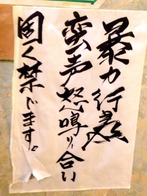 暴力行為
蛮声怒噂り合い
固く禁じます。